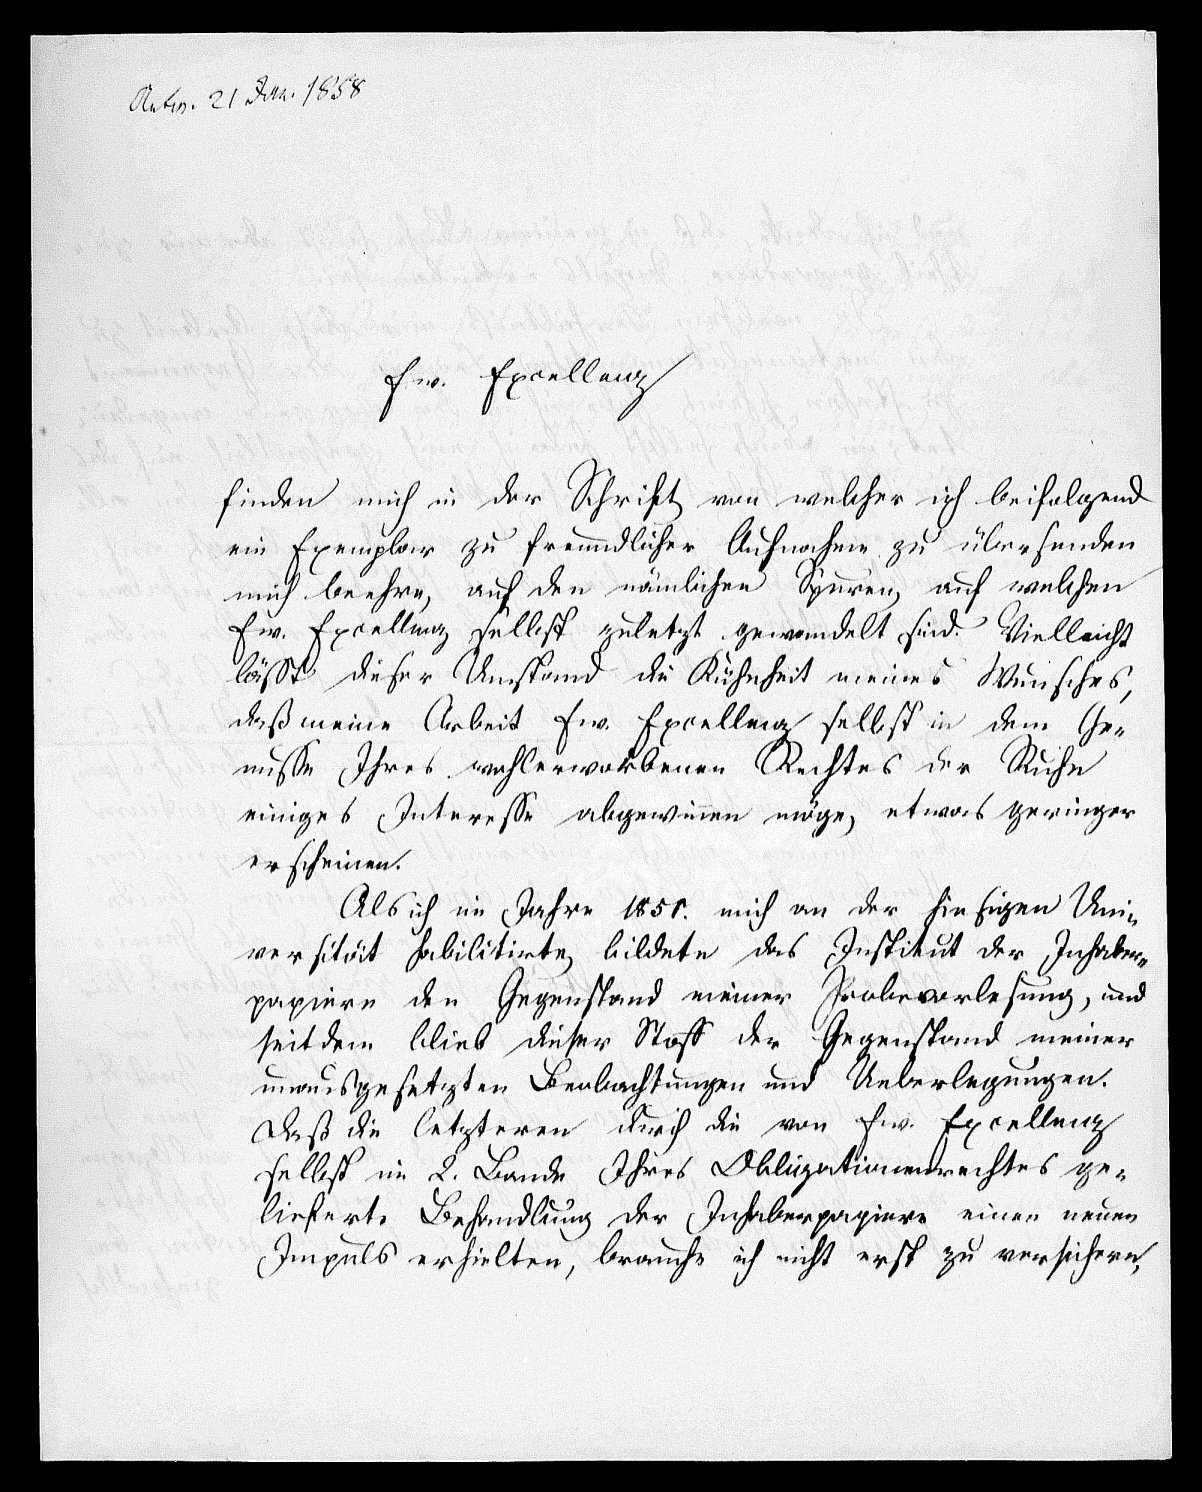 Antw. 21 Jan. 1858
Ew. Excellenz
finden mich in der Schrift, von welcher ich beifolgend
ein Exemplar zu freundlicher Aufnahme zu übersenden
mich beehre, auf den nämlichen Spuren, auf welchen
Ew. Excellenz selbst zuletzt gewandelt sind. Vielleicht
lässt dieser Umstand die Kühnheit meines Wunsches,
daß meine Arbeit Ew. Excellenz selbst in dem Ge-
nusse Ihres wohlerworbenen Rechtes der Ruhe
einiges Interesse abgewinnen möge, etwas geringer
erscheinen.
Als ich im Jahre 1851. mich an der hiesigen Uni-
versität habilitirte, bildete das Institut der Inhaber-
papiere den Gegenstand meiner Probevorlesung, und
seitdem blieb dieser Stoff der Gegenstand meiner
unausgesetzten Beobachtungen und Ueberlegungen.
Daß die letzteren durch die von Ew. Excellenz
selbst im 2. Bande Ihres Obligationenrechtes ge-
lieferte Behandlung der Inhaberpapiere einen neuen
Impuls erhielten, brauche ich nicht erst zu versichern,